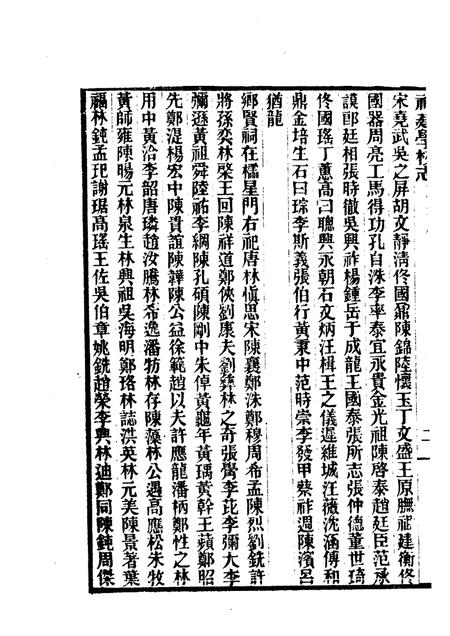 福建學校志
二
宋堯武吳之屏胡文靜清佟國鼐陳錦陸懷玉丁文盛王原膴祖建衡佟
國器周亮工馬得功孔自洙李率泰宜永貴金光祖陳啓泰趙廷臣范承
謨郎廷相張時徹吳興祚楊鍾岳于成龍王國泰張所志張仲德董世琦
佟國瑤丁蕙高曰聰興永朝石文炳汪楫王之儀遲維城汪薇沈涵傅和
鼎金培生石曰琮李斯義張伯行黃秉中范時崇李發甲蔡祚週陳濱呂
猶龍
鄉賢祠在櫺星門右祀唐林愼思宋陳襄鄭洙鄭穆周希孟陳烈劉銑許
將孫奕林槩王回陳祥道鄭俠劉康夫劉彝林之奇張鷽李玭李彌大李
彌遜黃祖舜陸祐李綱陳孔碩陳剛中朱倬黃龜年黃瑀黃幹王蘋鄭昭
先鄭湜楊宏中陳貴誼陳韡陳公益徐範趙以夫許應龍潘柄鄭性之林
用中黃洽李韶唐璘趙汝騰林希逸潘牥林存陳藻林公遇高應松朱牧
黃師雍陳暘元林泉生林興祖吳海明鄭珞林誌洪英林元美陳景著葉
福林鈍孟玘謝琚高瑤王佐吳伯章姚銑趙榮李典林迪鄭同陳鈍周傑